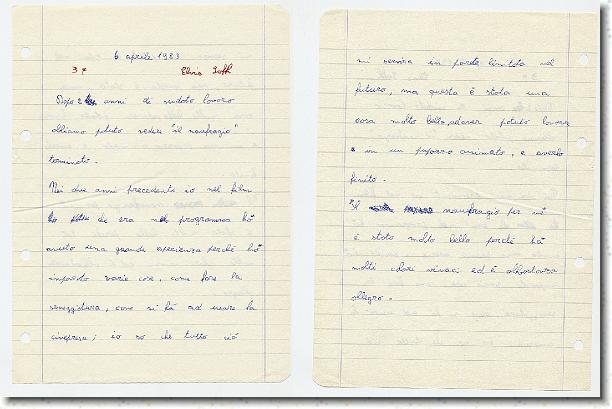 6 aprile 1983
3ª Elvio Toth
Dopo 2 anni di sudato lavoro
abbiamo potuto vedere "il naufragio"
terminato.
Nei due anni precedenti io nel film
che era nel programma hò
avuto una grande esperienza perché hò
imparato varie cose, come fare la
sceneggiatura, come si fà ad usare la
cinepresa; io so che tutto ciò
mi servirà in parte limitata nel
futuro, ma questa è stata una
cosa molto bella, adesso potuto lavorare
in un pupazzo animato, e averlo
finito.
"Il naufragio per mè
è stato molto bello perché hà
molti colori vivaci ed è abbastanza
allegro.